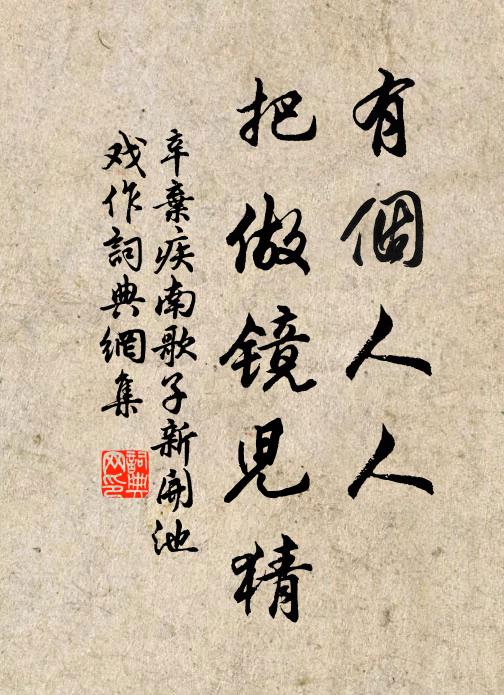 有個人人
把做镜兒猜
辛棄疾南歌子新開池
戏作詞典網集
詞典网印